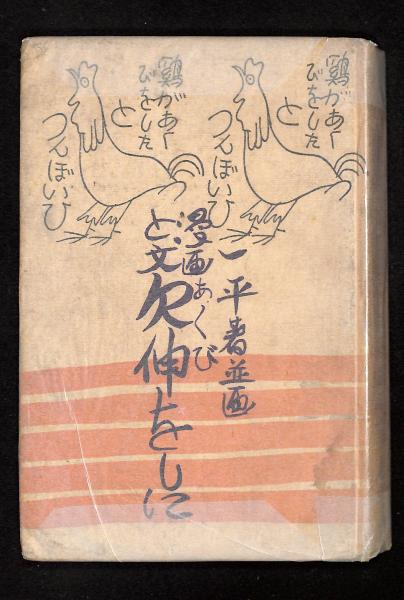 鶏があく
びをした
と
つんぼいひ
鶏があく
びをした
と
つんぼいひ
一平著並画
漫画
と文
あくび
欠伸をしに